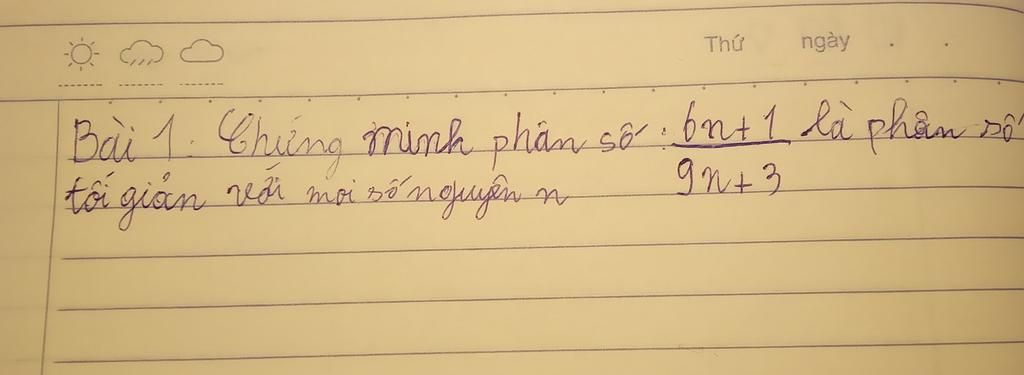 Thứ ngày . .
Bài 1. Chứng minh phân số : 6n+1 là phân số
9n+3
tối giản với mọi số nguyên n